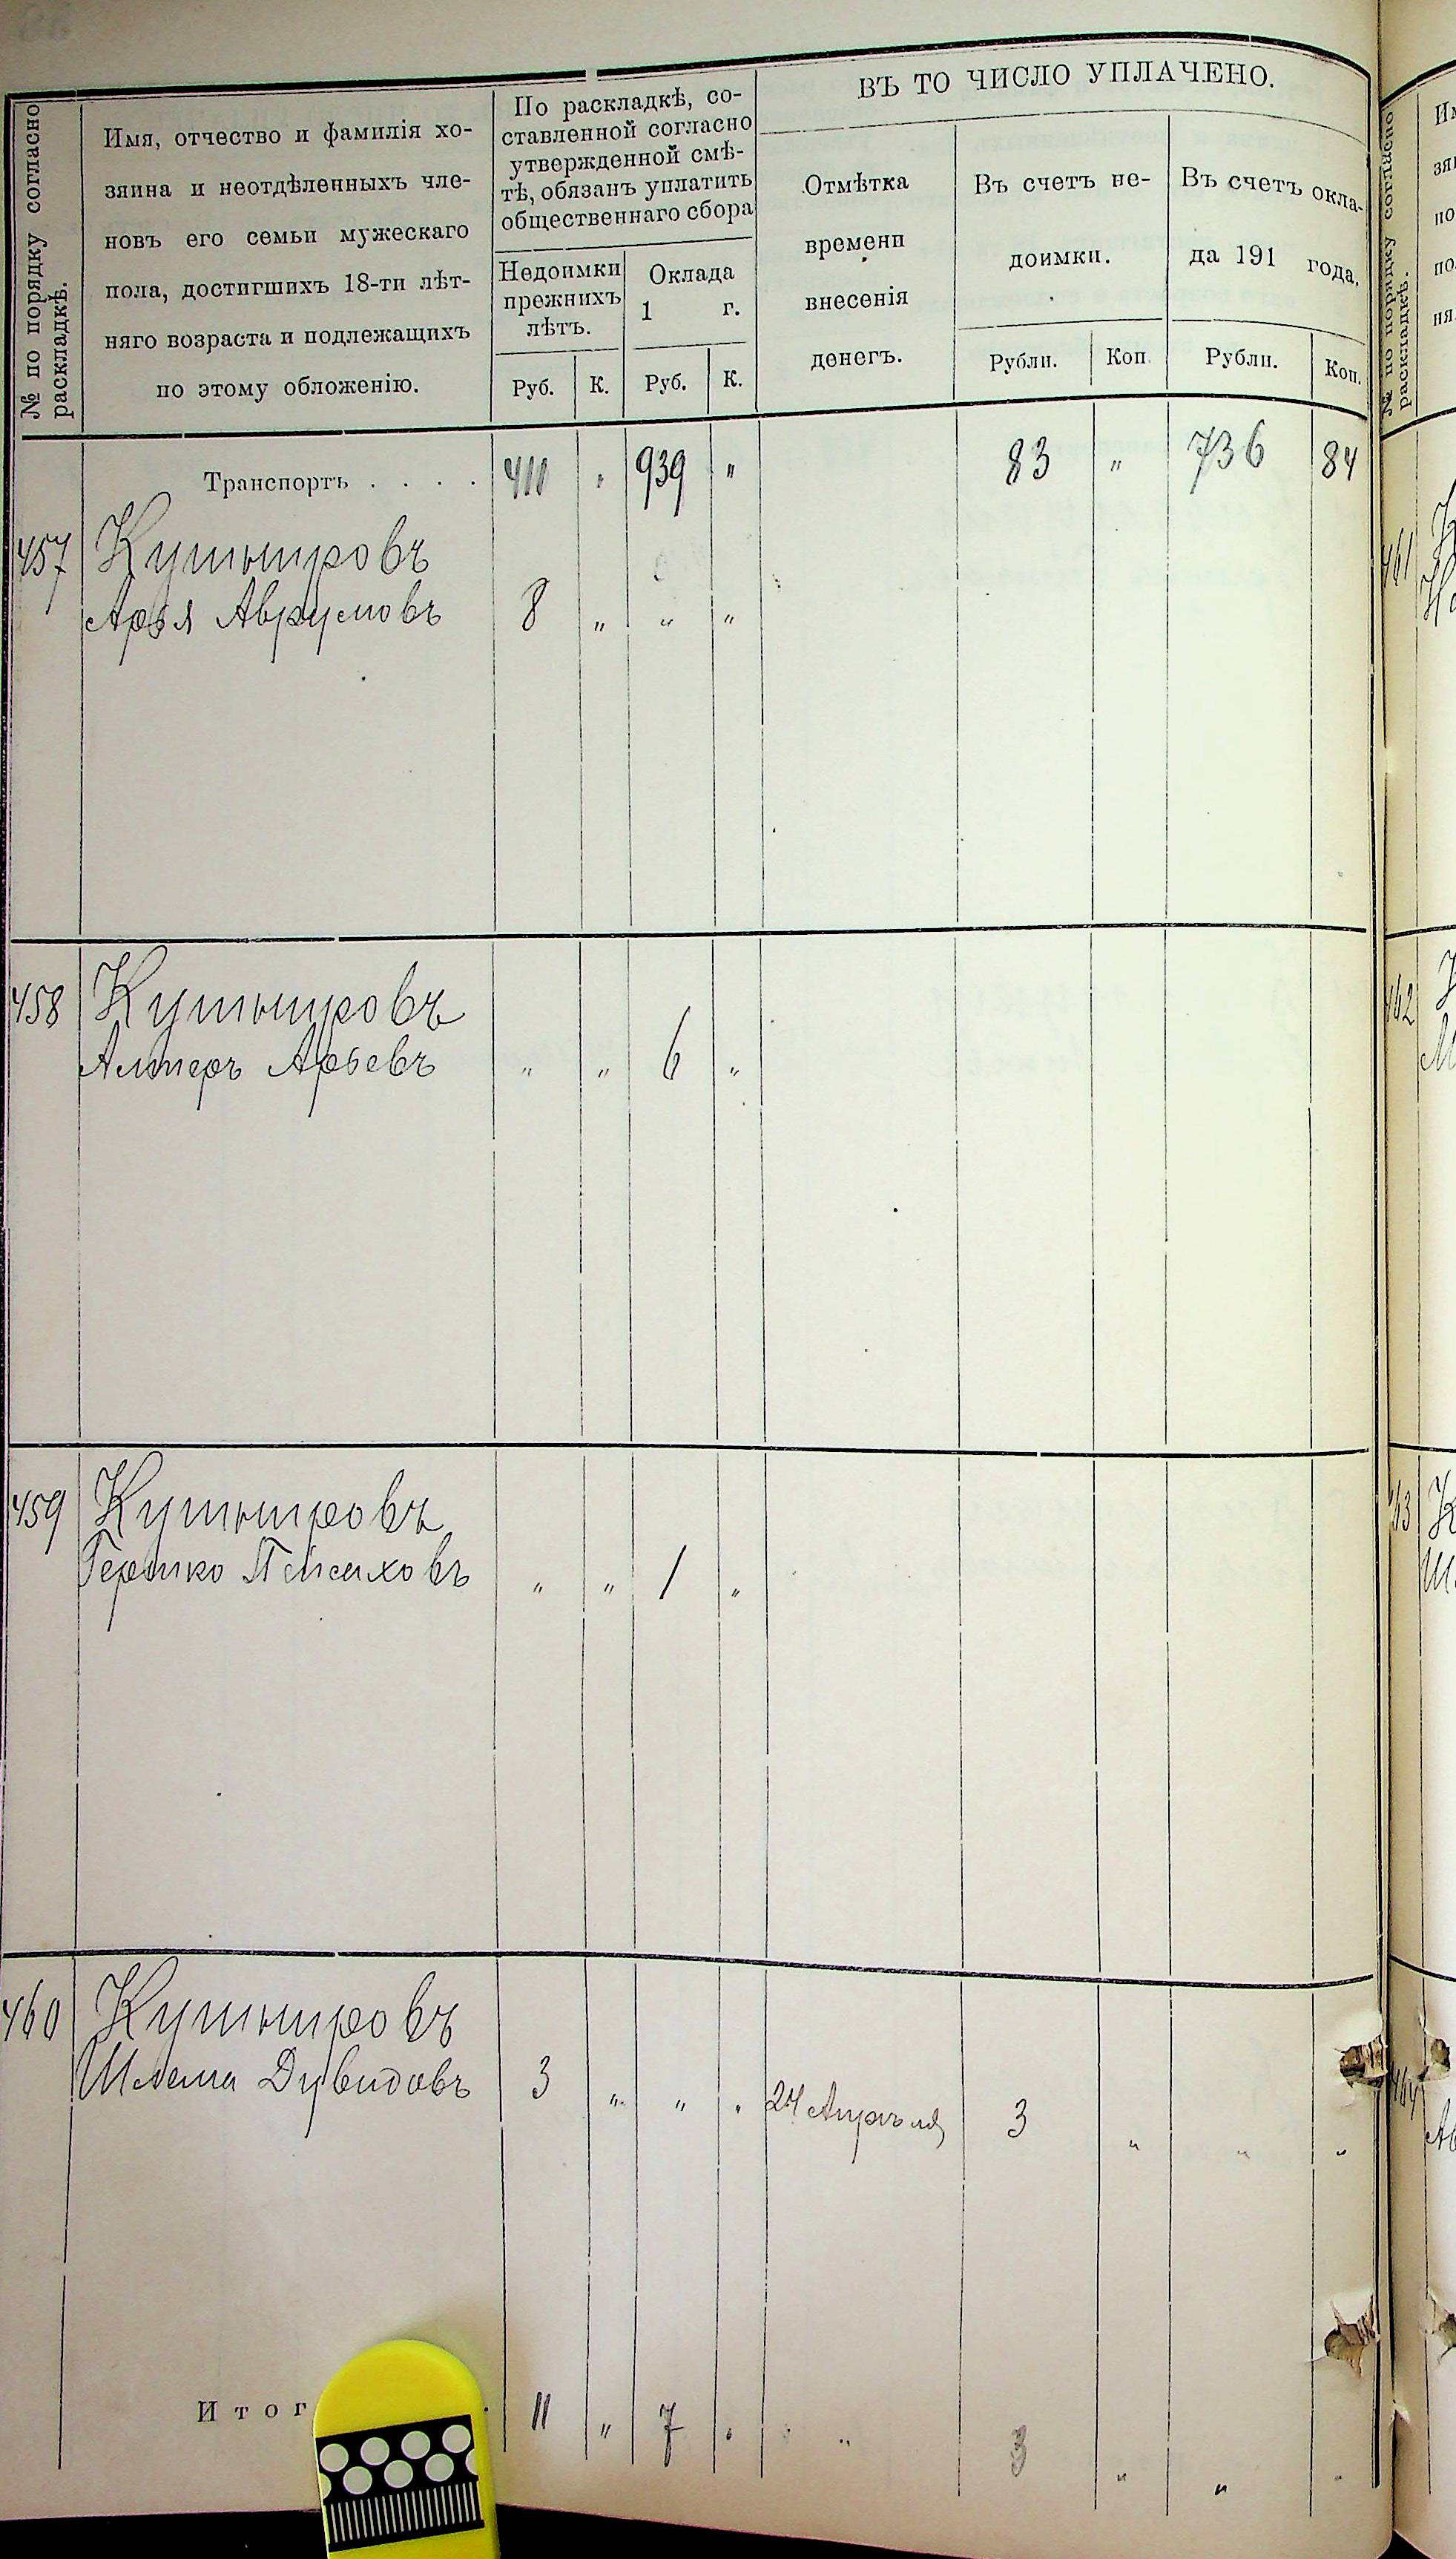 № по порядку согласно
раскладкѣ.
Имя, отчество и фамилія хо-
зяина и неотдѣленныхъ чле-
новъ его семьи мужескаго
пола, достигшихъ 18-ти лѣт-
няго возраста и подлежащихъ
по этому обложенію.
По раскладкѣ, со-
ставленной согласно
утвержденной смѣ-
тѣ, обязанъ уплатить
общественнаго сбора
Недоимки
прежнихъ
лѣтъ.
Оклада
1 г.
Руб. К. Руб. К.
ВЪ ТО ЧИСЛО УПЛАЧЕНО.
Отмѣтка
времени
внесенія
денегъ.
Въ счетъ не-
доимки.
Въ счетъ окла-
да 191 года.
Рубли. Коп. Рубли. Коп.
Транспортъ . . . . 410 „ 939 „ 83 „ 736 84
457 Кушнировъ
Арья Аврумовъ 8 „ „ „
458 Кушнировъ
Алтеръ Арьевъ „ „ 6 „
459 Кушнировъ
Гершко Пейсаховъ „ „ 1 „
460 Кушнировъ
Шлема Дувидовъ 3 „ „ „ 24 Апрѣля 3 „ „ „
Итог 11 „ 7 „ „ 3 „ „ „
№ по порядку согласно
раскладкѣ.
461
462
463
464